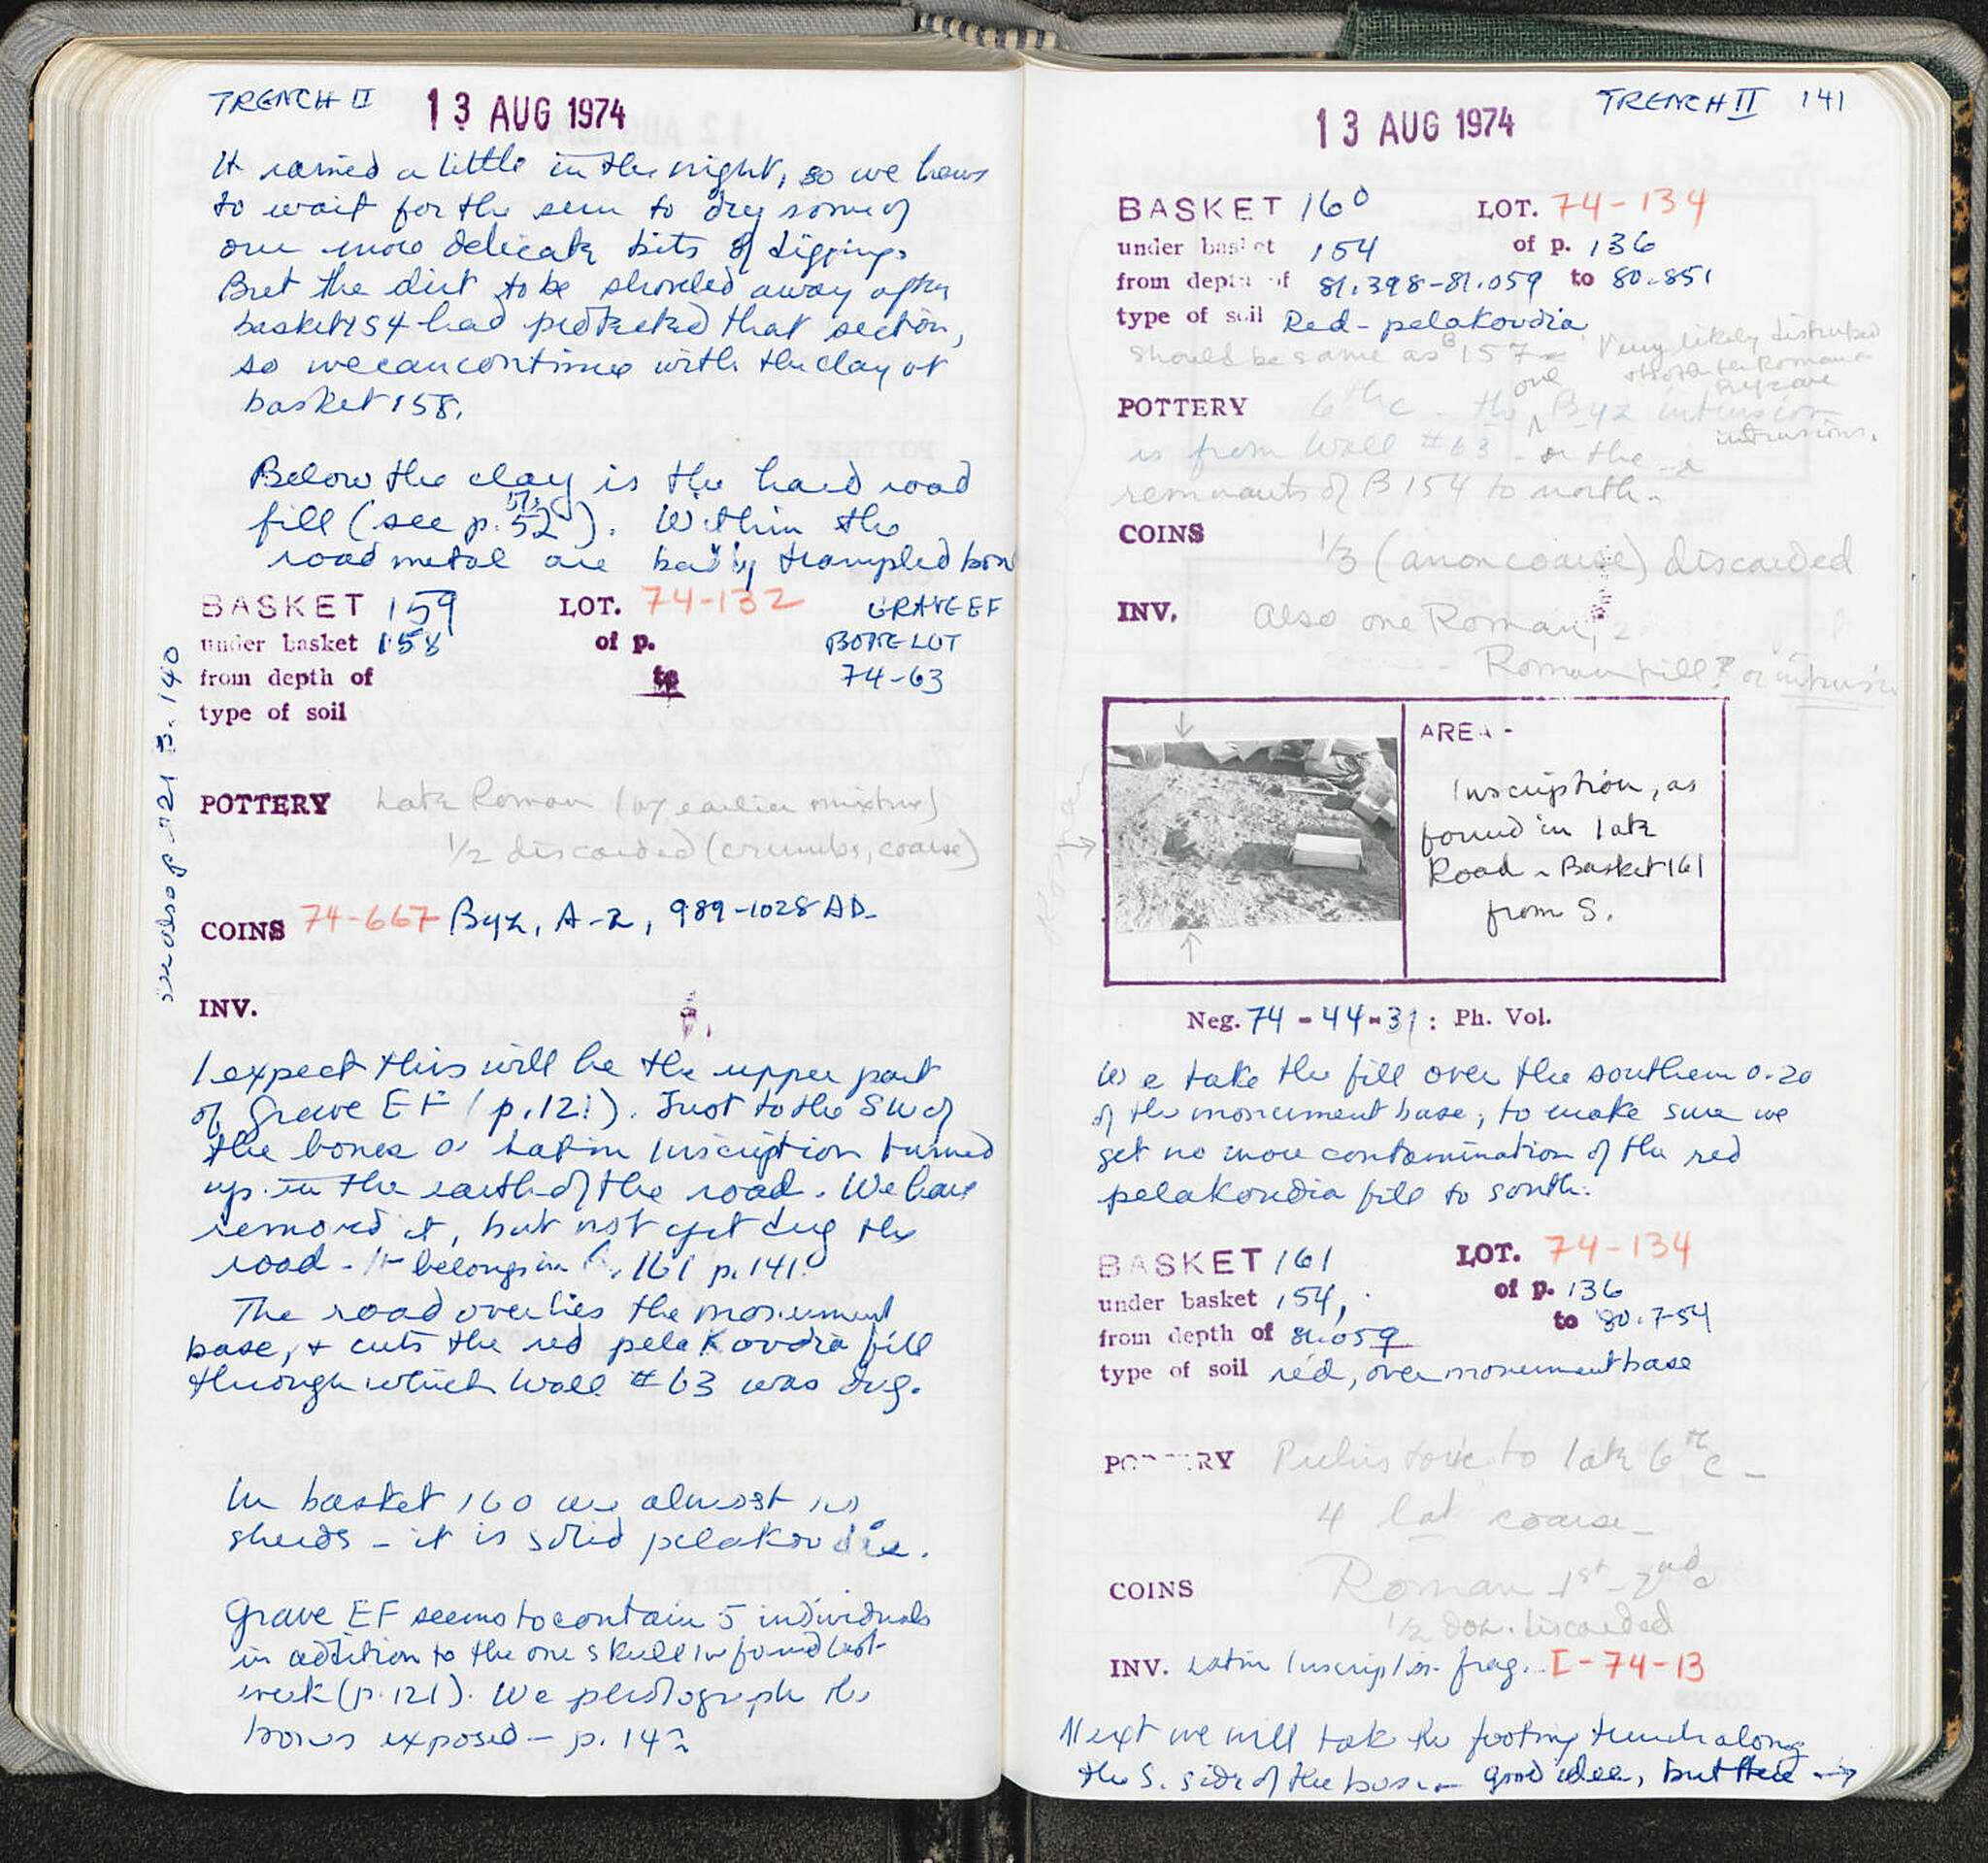 TRENCH II
13 AUG 1974
It rained a little in the night, so we have
to wait for the sun to dry some of
our more delicate bits of digging.
But the dirt to be shoveled away after
basket 154 had protected that section,
so we can continue with the clay of
basket 158.
Below the clay is the hard road
fill (see p. 52). Within the
road metal are badly trampled bon
BASKET 159 LOT. 74-132 GRAVE EF
under basket 158 of p. BONE LOT
from depth of to 74-63
type of soil
see also p 121 B. 140
POTTERY Late Roman (w/ earlier mixture)
1/2 discarded (crumbs, coarse)
COINS 74-667 Byz, A-2, 989-1028 AD
INV.
I expect this will be the upper part
of Grave EF (p. 121). Just to the SW of
the bones a Latin Inscription turned
up in the earth of the road. We have
removed it, but not yet dug the
road - It belongs in B. 161 p. 141.
The road overlies the monument
base, + cuts the red pelakoudia fill
through which Wall #63 was dug.
In basket 160 are almost no
sherds - it is solid pelakoudia.
Grave EF seems to contain 5 individuals
in addition to the one skull we found last
week (p. 121). We photograph the
bones exposed - p. 142
13 AUG 1974
TRENCH II 141
BASKET 160 LOT. 74-134
under basket 154 of p. 136
from depth of 81.398-81.059 to 80.851
type of soil Red - pelakoudia
should be same as B 157 Very likely disturbed
Roman
POTTERY 6th c - the one Byz intrusion
intrusions.
is from Wall #63 - or the
remnants of B 154 to north.
COINS
1/3 (anon coarse) discarded
INV. Also one Roman,
Roman fill? or intrusi
Roman
AREA -
Inscription, as
found in late
Road - Basket 161
from S.
Neg. 74-44-31 : Ph. Vol.
We take the fill over the southern 0.20
of the monument base, to make sure we
get no more contamination of the red
pelakoudia fill to south.
BASKET 161 LOT. 74-134
under basket 154, of p. 136
from depth of 81.059 to 80.754
type of soil red, over monument base
POTTERY Prehistoric to late 6th c -
4 coarse -
COINS Roman 1st-2nd c
1/2 discarded
INV. Latin Inscription frag. I-74-13
Next we will take the footing trench along
the S. side of the base - good idea, but there →